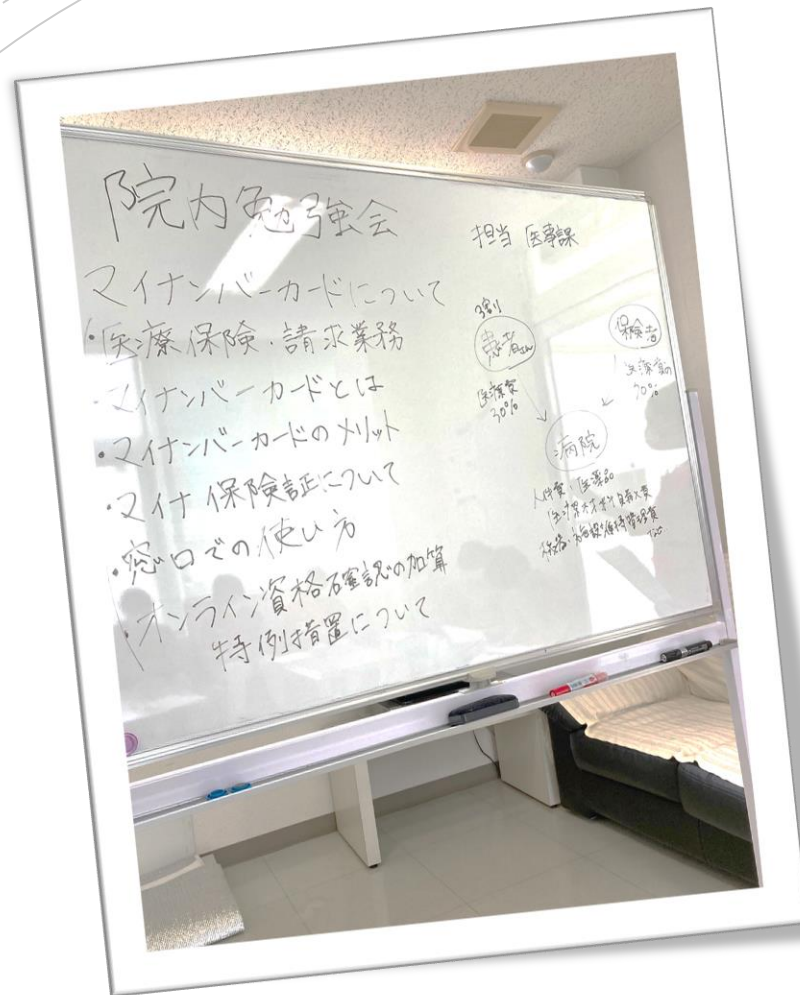 院内勉強会
担当 医事課
マイナンバーカードについて
・医療保険・請求業務
・マイナンバーカードとは
・マイナンバーカードのメリット
・マイナ保険証について
・窓口での使い方
・オンライン資格確認の加算
特例措置について
3割
患者さん
医療費
30%
保険者
医療費の
70%
病院
人件費・医薬品
維持管理費